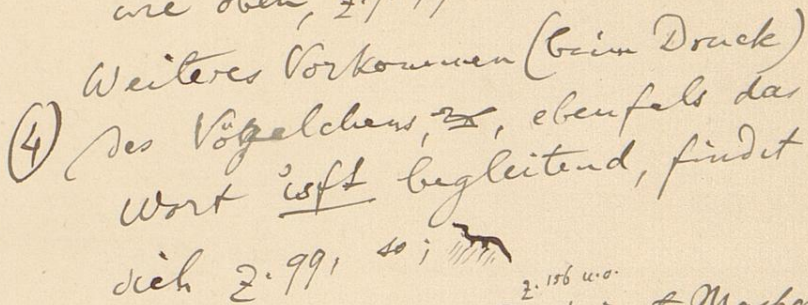 wie oben, Z.
Weiteres Vorkommen (beim Druck)
④ des Vögelchens, , ebenfals das
Wort isft begleitend, findet
sich Z. 99, so;
Z. 156 u.o.